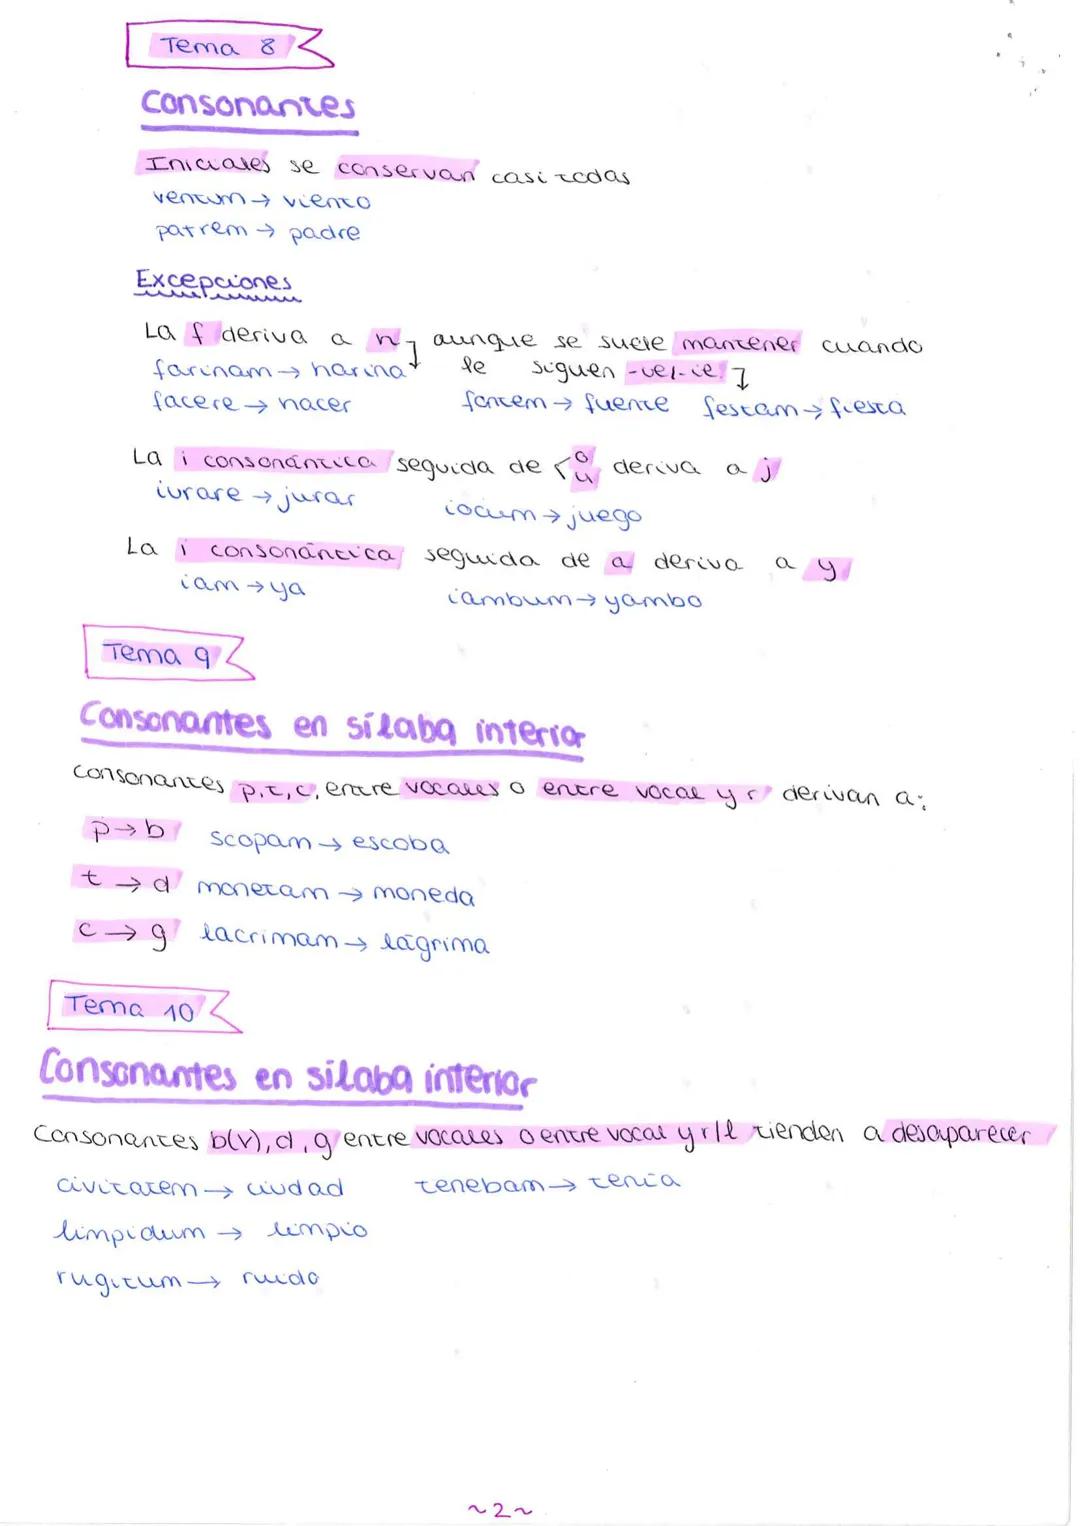 Tema 8
Consonantes
Iniciales se conservan casi todas
ventum → viento
patrem → padre
Excepciones
La f deriva a h, aunque se suele mantener cuando
farinam → harina le siguen -ue/-ie.
facere → hacer fontem → fuente festam → fiesta
La i consonántica seguida de o u deriva a j
iurare → jurar iocum → juego
La i consonántica seguida de a deriva a y
iam → ya iambum → yambo
Tema 9
Consonantes en sílaba interior
Consonantes p, t, c, entre vocales o entre vocal y r derivan a:
p → b scopam → escoba
t → d monetam → moneda
c → g lacrimam → lágrima
Tema 10
Consonantes en sílaba interior
Consonantes b(v), d, g entre vocales o entre vocal y r/l tienden a desaparecer
civitatem → ciudad tenebam → tenía
limpidum → limpio
rugitum → ruido
~2~